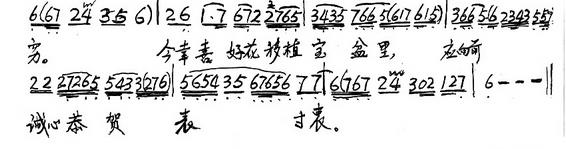 6(67 24 3 5 6) | 2 6 7 672 2765 | 3435 7665(617 615) | 366516 2343 55
穷。 今幸喜 好花移植宝 盆里, 应向前
2 2 27265 5433(276) | 5654 35 67656 7 7 | 6(767 24 302 127 | 6 - - - ‖
诚心恭 贺 表 寸衷。